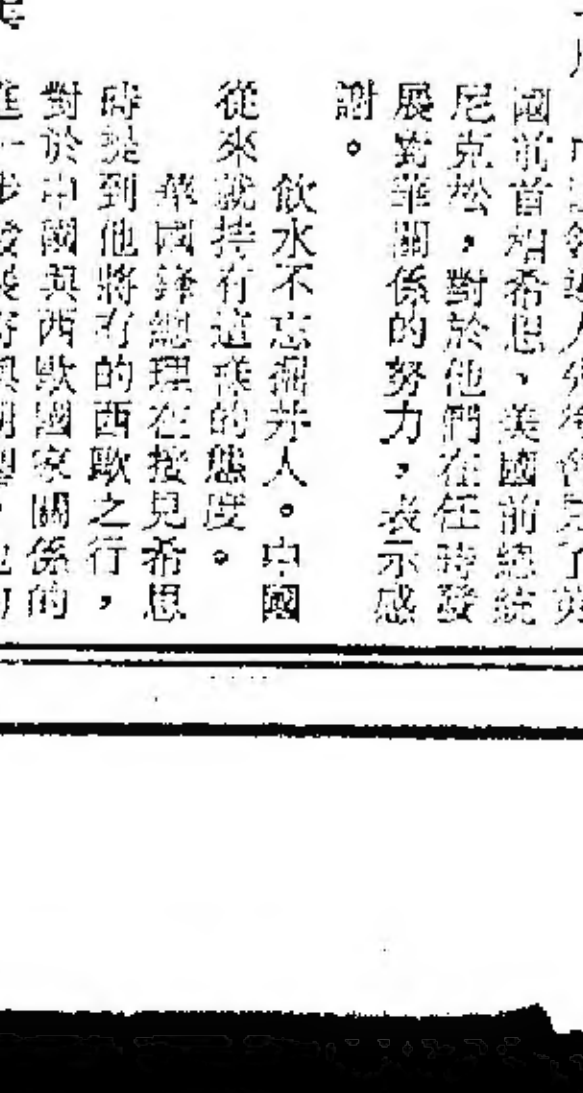 國前首相希思、美國前總統
尼克松，對於他們在任時發
展對華關係的努力，表示感
謝。
飲水不忘掘井人。中國
從來就持有這樣的態度。
華國鋒總理在接見希思
時提到他將有的西歐之行，
對於中國與西歐國家關係的